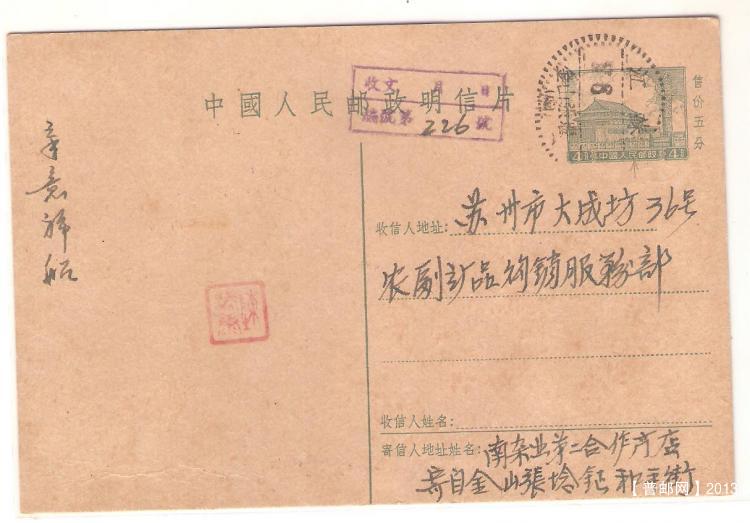 中國人民邮政明信片
收文 月 日
編號第 226 號
信价五分
4分 中國人民邮政 4分
收信人地址: 苏州市大成坊36号
农副产品购销服务部
收信人姓名:
寄信人地址姓名: 南杂业第二合作商店
寄自金山張埝鎮和平街
【普邮网】2013